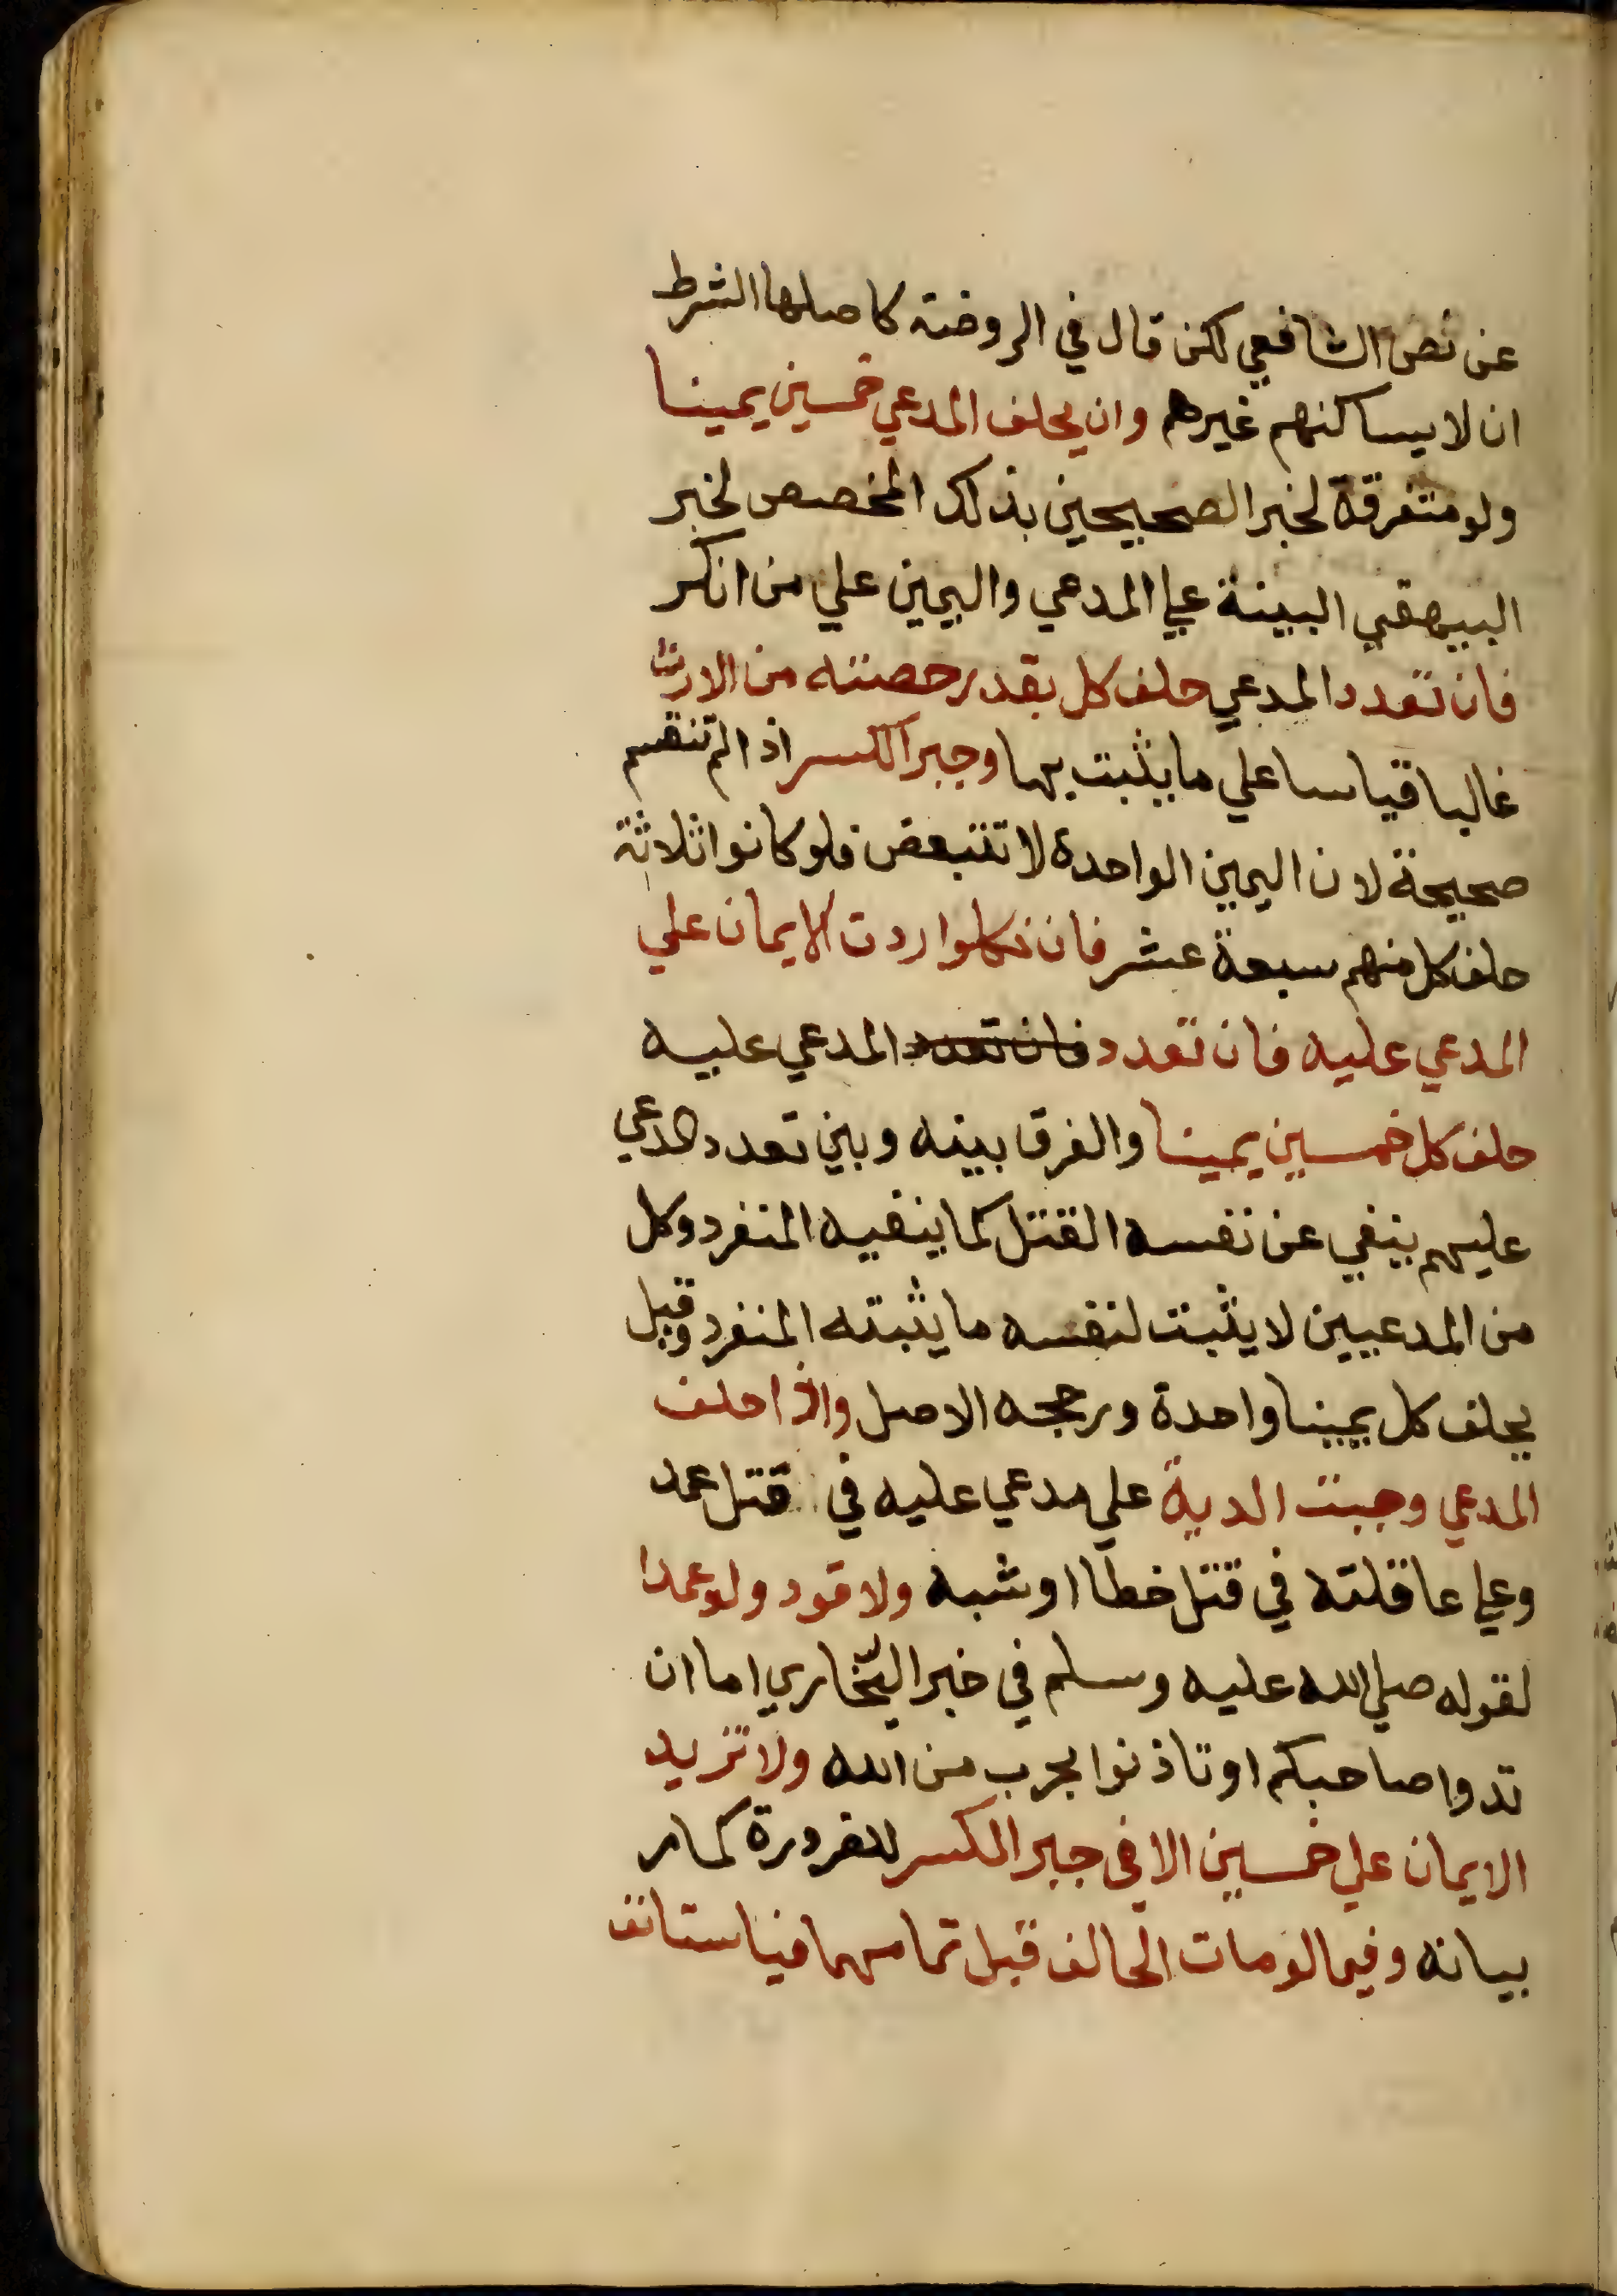 عن نص الشافعي لكن قال في الروضة كاصلها الشرط
ان لا يساكنهم غيرهم وان يحلف المدعي خمسين يمينا
ولو متفرقة لخبر الصحيحين بذلك المخصص لخبر
البيهقي البينة علي المدعي واليمين علي من انكر
فان تعدد المدعي حلف كل بقدر حصته من الارث
غالبا قياسا علي ما يثبت بها وجبر الكسر اذا لم تنقسم
صحيحة لان اليمين الواحدة لا تتبعض فلو كانوا ثلاثة
حلف كل منهم سبعة عشر فان نكلوا ردت الايمان علي
المدعي عليه فان تعدد فان تعدد المدعي عليه
حلف كل خمسين يمينا والفرق بينه وبين تعدد المدعي
عليهم ينفي عن نفسه القتل كما ينفيه المنفرد وكل
من المدعيين لا يثبت لنفسه ما يثبته المنفرد وقيل
يحلف كل يمينا واحدة ورجحه الاصل واذا حلف
المدعي وجبت الدية علي مدعي عليه في قتل عمد
وعلي عاقلته في قتل خطا او شبه ولا قود ولو عمدا
لقوله صلي الله عليه وسلم في خبر البخاري اما ان
تدوا صاحبكم او تاذنوا بحرب من الله ولا تزيد
الايمان علي خمسين الا في جبر الكسر للضرورة كما مر
بيانه وفيما لو مات الحالف قبل تمامها فيا ستانف